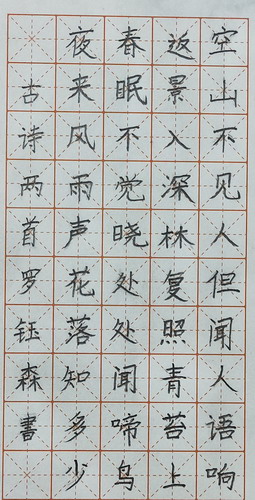 空山不见人但闻人语响
返景入深林复照青苔上
春眠不觉晓处处闻啼鸟
夜来风雨声花落知多少
古诗两首罗钰森書